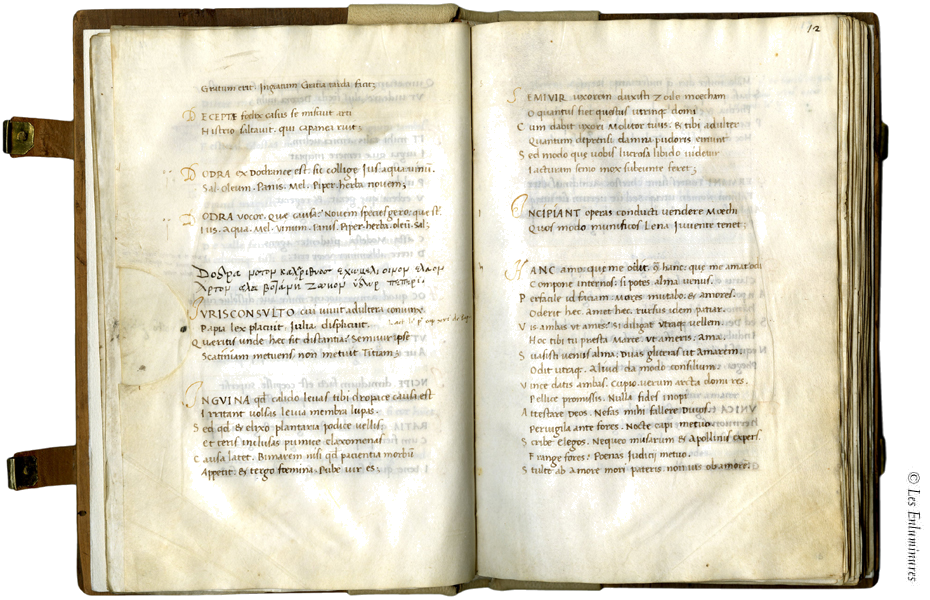 Gratum erit. Ingratum Gratia tarda facit;
DECEPTAE foelix casus se miscuit arti
Histrio saltavit, qui capanea ruit;
DODRA ex Dodrante est. sic collige Jus. aqua. vinū.
Sal. oleum. Panis. Mel. Piper. herba novem;
DODRA vocor. Que causa? Novem species gero. que st?
Jus. Aqua. Mel. Vinum. Panis. Piper. herba. oleū. Sal;
Δοδρα
JURISCONSULTO cui vivit adultera coniunx
Papia lex placuit. Julia displicuit.
Queritis unde hec sit distantia? Semivir ipse
Scatiniam metuens. non metuit Titiam;
INGVINA qd calido levas tibi dropace causa est
Irritant volsas levia membra lupas.
Sed qd & elixo plantaria podice vellis
et teris inclusas pumice clazomenas
Causa latet. Bimarem nisi qd pacientia morbū
Appetit. & tergo foemina. Pube vir es;
12
SEMIVIR uxorem duxisti Zode moecham
O quantus fiet questus utrinque domi
Cum dabit uxori Molitor tuus. & tibi adulter
Quantum deprensi damna pudoris emunt
Sed modo que vobis lucrosa libido videtur
Iacturam senio mox subeunte feret;
INCIPIANT operas conducti vendere Moechi
Quos modo munificos Lena Iuventa tenet;
HANC amo que me odit. & hanc. que me amat odi
Compone internos. si potes alma venus.
Perfacile id faciam. Mores mutabo. & amores.
Oderit hec. Amet hec. rursus idem patiar.
Vis ambas ut ames? Si diligat utraque vellem.
Hoc tibi tu presta Marce. ut ameris. ama.
Suasisti venus alma. Duas gliceras ut amarem.
Odit utraque. Aliud da modo consilium.
Vince datis ambas. Cupio. verum arcta domi res.
Pellice promissis. Nulla fides inopi
Attestare Deos. Nefas mihi fallere Divos.
Pervigila ante fores. Nocte capi metuo.
Scribe elegos. Nequeo musarum & Apollinis expers.
Frange fores. Poenas Judicij metuo.
Stulte ab amore mori pateris. non vis ob amorē.
© Les Enluminures